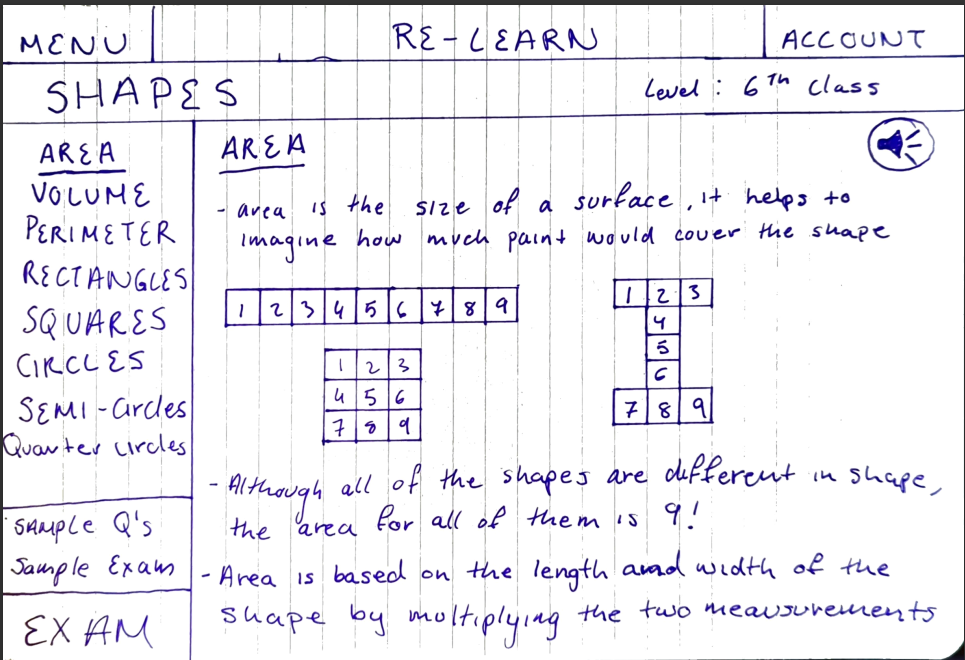 MENU
RE-LEARN
ACCOUNT
SHAPES
Level : 6Th Class
AREA
VOLUME
PERIMETER
RECTANGLES
SQUARES
CIRCLES
SEMI-Circles
Quarter circles
SAMPLE Q's
Sample Exam
EXAM
AREA
- area is the size of a surface, it helps to
imagine how much paint would cover the shape
1 2 3 4 5 6 7 8 9
1 2 3
4 5 6
7 8 9
1 2 3
4
5
6
7 8 9
- Although all of the shapes are different in shape,
the area for all of them is 9!
- Area is based on the length and width of the
shape by multiplying the two meausurements